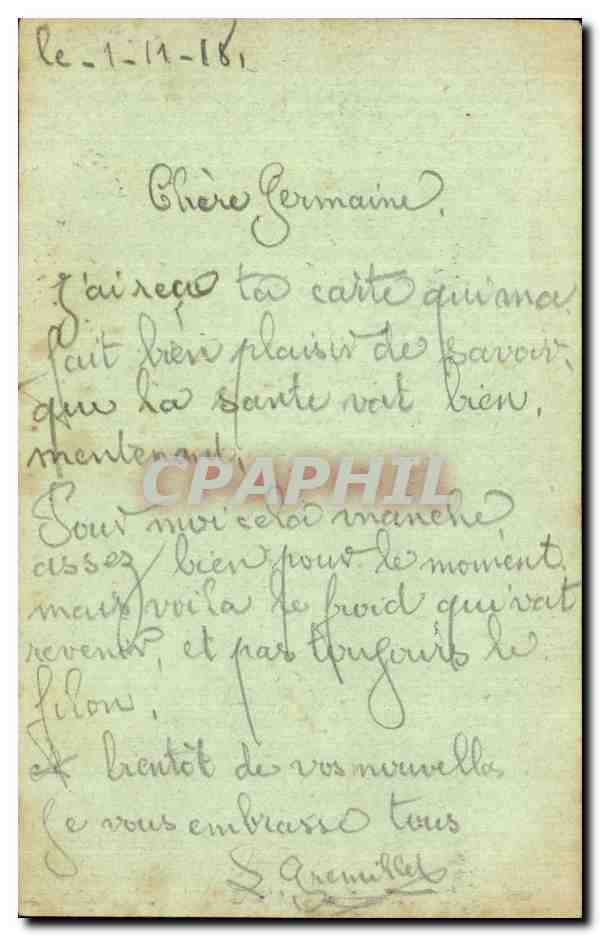 le - 1 - 11 - 18.
Chère Germaine,
J'ai reçu ta carte qui ma
fait bien plaisir de savoir,
que la sante vat bien,
mentenant,
CPAPHIL
Pour moi cela manche
assez bien pour le moment
mais voila le froid qu'vat
revenir, et pas toujours le
filon,
A bientôt de vos nouvelles
Je vous embrasse tous